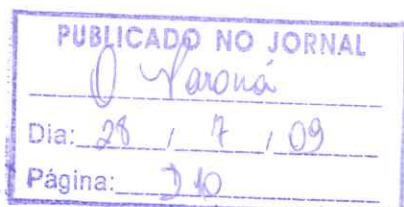 PUBLICADO NO JORNAL
O Paraná
Dia: 28 / 7 / 09
Página: D10